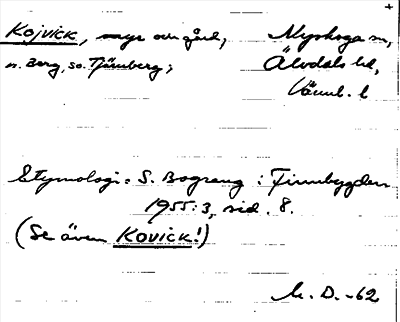 Kojvick, myr och gård, Nyskoga sn,
n. Berg, so. Tjärnberg; Älvdals hd,
Värml. l
Etymologi: S. Bograng: Finnbygden
1955:3, sid. 8.
(Se även Kovick!)
M. D. -62